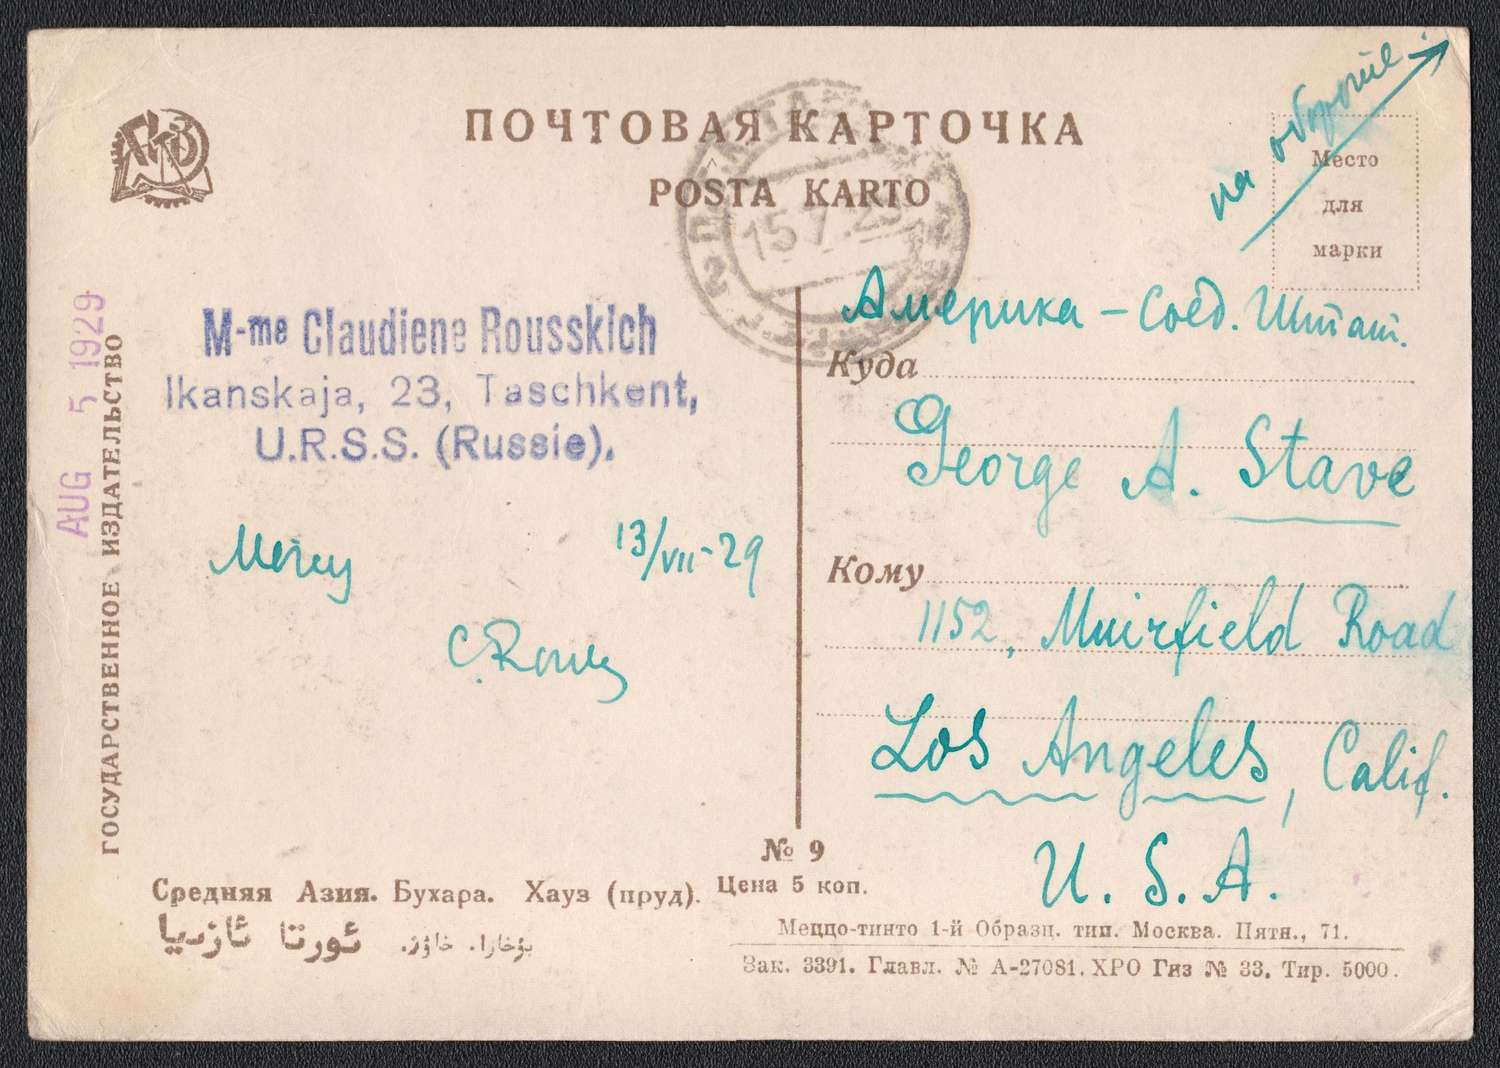 ПОЧТОВАЯ КАРТОЧКА
POSTA KARTO
на обороте
Место
для
марки
15.7.29
AUG 5 1929
ГОСУДАРСТВЕННОЕ ИЗДАТЕЛЬСТВО
M-me Claudiene Rousskich
Ikanskaja, 23, Taschkent,
U.R.S.S. (Russie).
13/VII-29
Америка - Соед. Штат.
Куда
George A. Stave
Кому
1152, Muirfield Road
Los Angeles, Calif.
U. S. A.
№ 9
Средняя Азия. Бухара. Хауз (пруд). Цена 5 коп.
ئورتا ئازىيا بۇخارا. خاۋز.
Меццо-тинто 1-й Образц. тип. Москва. Пятн., 71.
Зак. 3391. Главл. № А-27081. ХРО Гиз № 33. Тир. 5000.